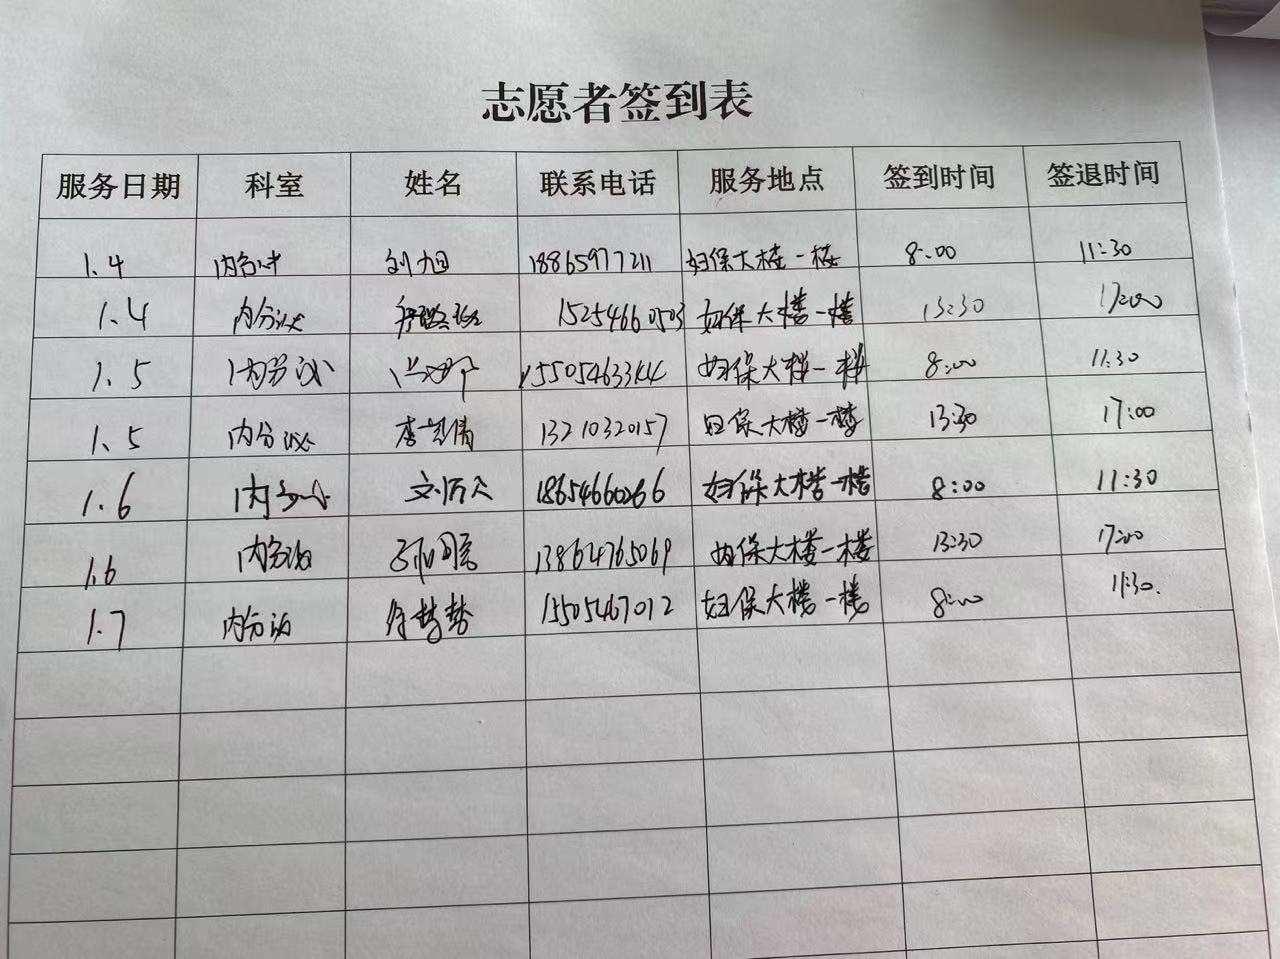 志愿者签到表
服务日期 科室 姓名 联系电话 服务地点 签到时间 签退时间
1.4 刘旭 18865977211 妇保大楼一楼 8:00 11:30
1.4 内分泌 15254660503 妇保大楼一楼 13:30 17:00
1.5 内分泌 妇保大楼一楼 8:00 11:30
1.5 内分泌 李 倩 13210320157 妇保大楼一楼 13:30 17:00
1.6 18654660266 妇保大楼一楼 8:00 11:30
1.6 内分泌 13864765069 妇保大楼一楼 13:30 17:00
1.7 内分泌 徐梦梦 15505467012 妇保大楼一楼 8:00 11:30.